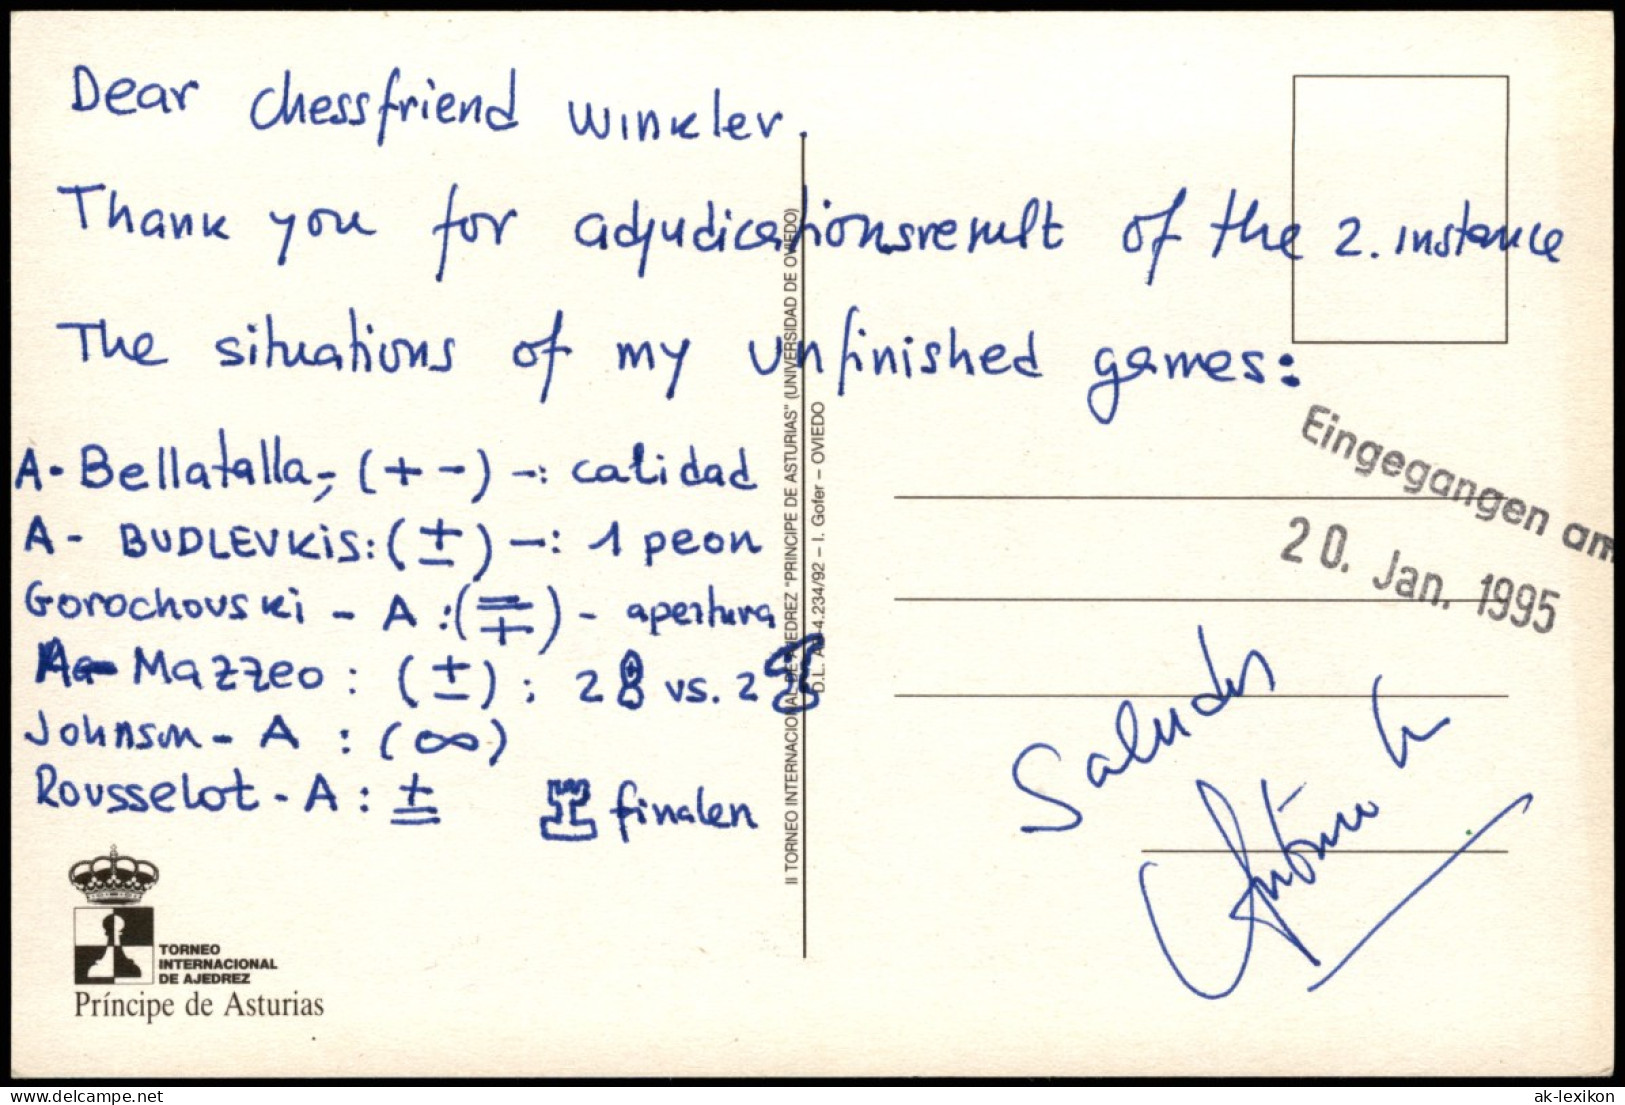 Dear chessfriend Winkler.
Thank you for adjudicationsresult of the 2. instance
The situations of my unfinished games:
A - Bellatalla, (+ -) -: calidad
A - BUDLEVKIS: (±) -: 1 peon
Gorochovski - A : (∓) - apertura
A - Mazzeo : (±) : 2 ♗ vs. 2 ♘
Johnson - A : (∞)
Rousselot - A : ⩲ ♖ finalen
Eingegangen am
20. Jan. 1995
Saludos
António
II TORNEO INTERNACIONAL DE AJEDREZ "PRINCIPE DE ASTURIAS" (UNIVERSIDAD DE OVIEDO)
D.L. AS-4.234/92 – I. Gofer – OVIEDO
TORNEO
INTERNACIONAL
DE AJEDREZ
Príncipe de Asturias
delcampe.net
ak-lexikon